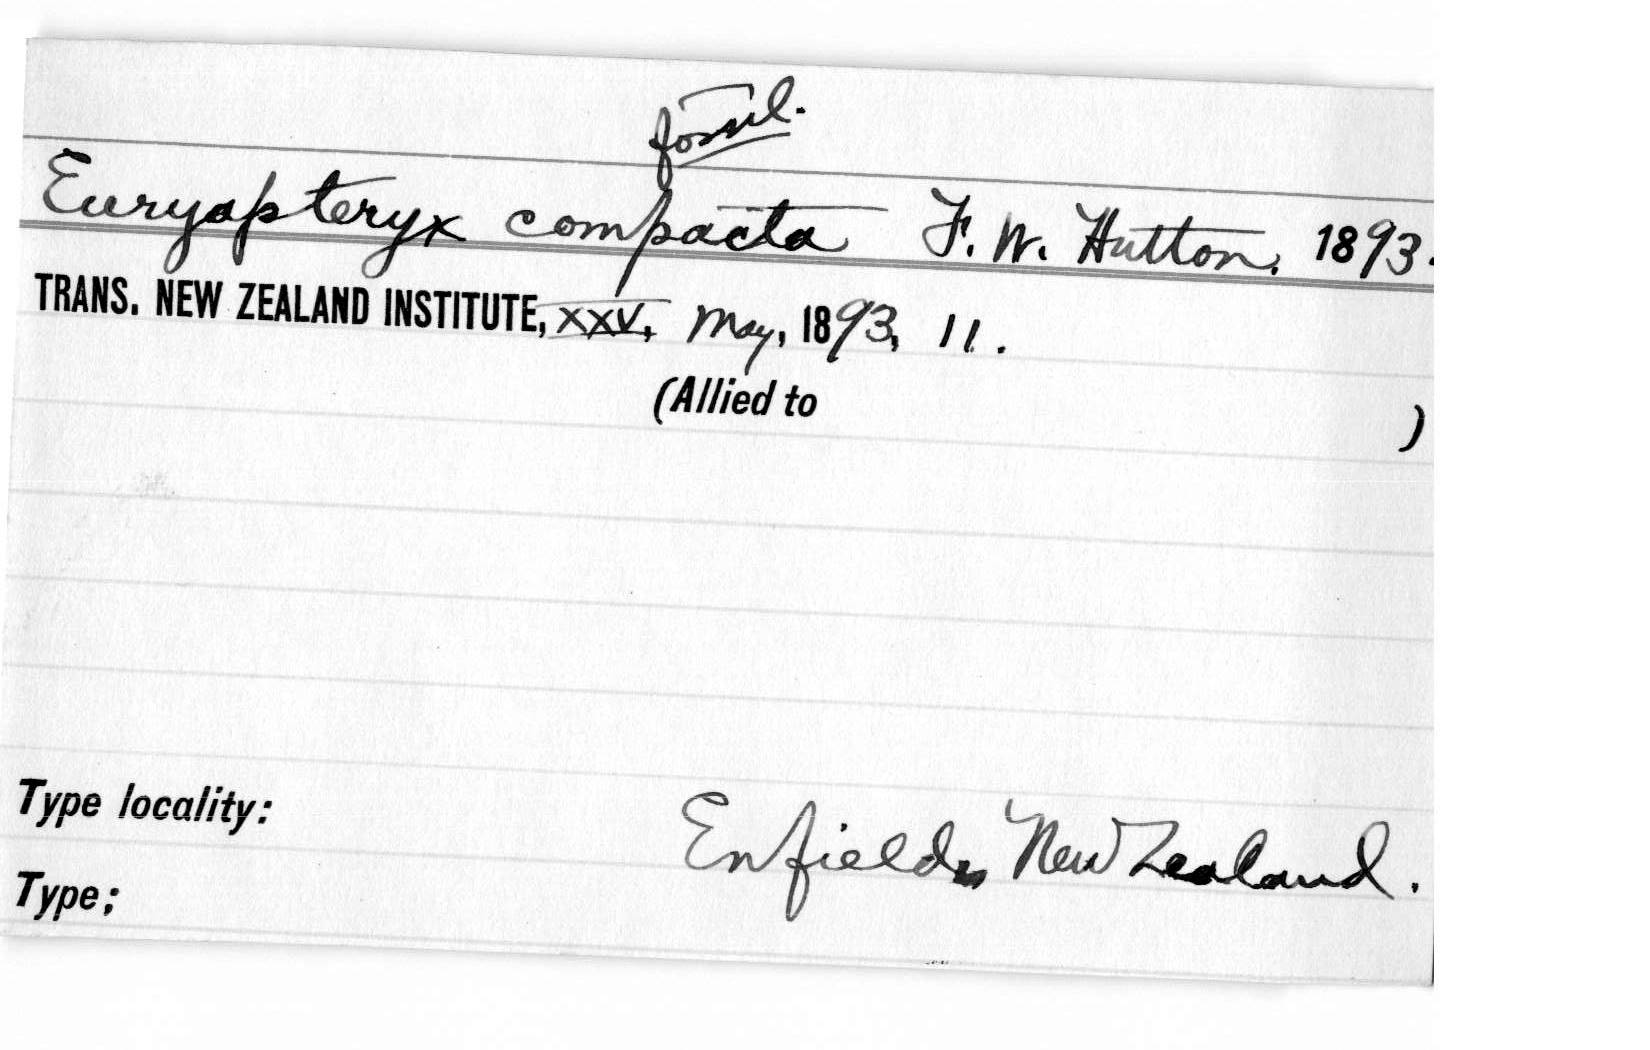 fossil.
Euryapteryx compacta F. W. Hutton, 1893.
TRANS. NEW ZEALAND INSTITUTE, XXV, May, 1893, 11.
(Allied to )
Type locality: Enfield, New Zealand.
Type: